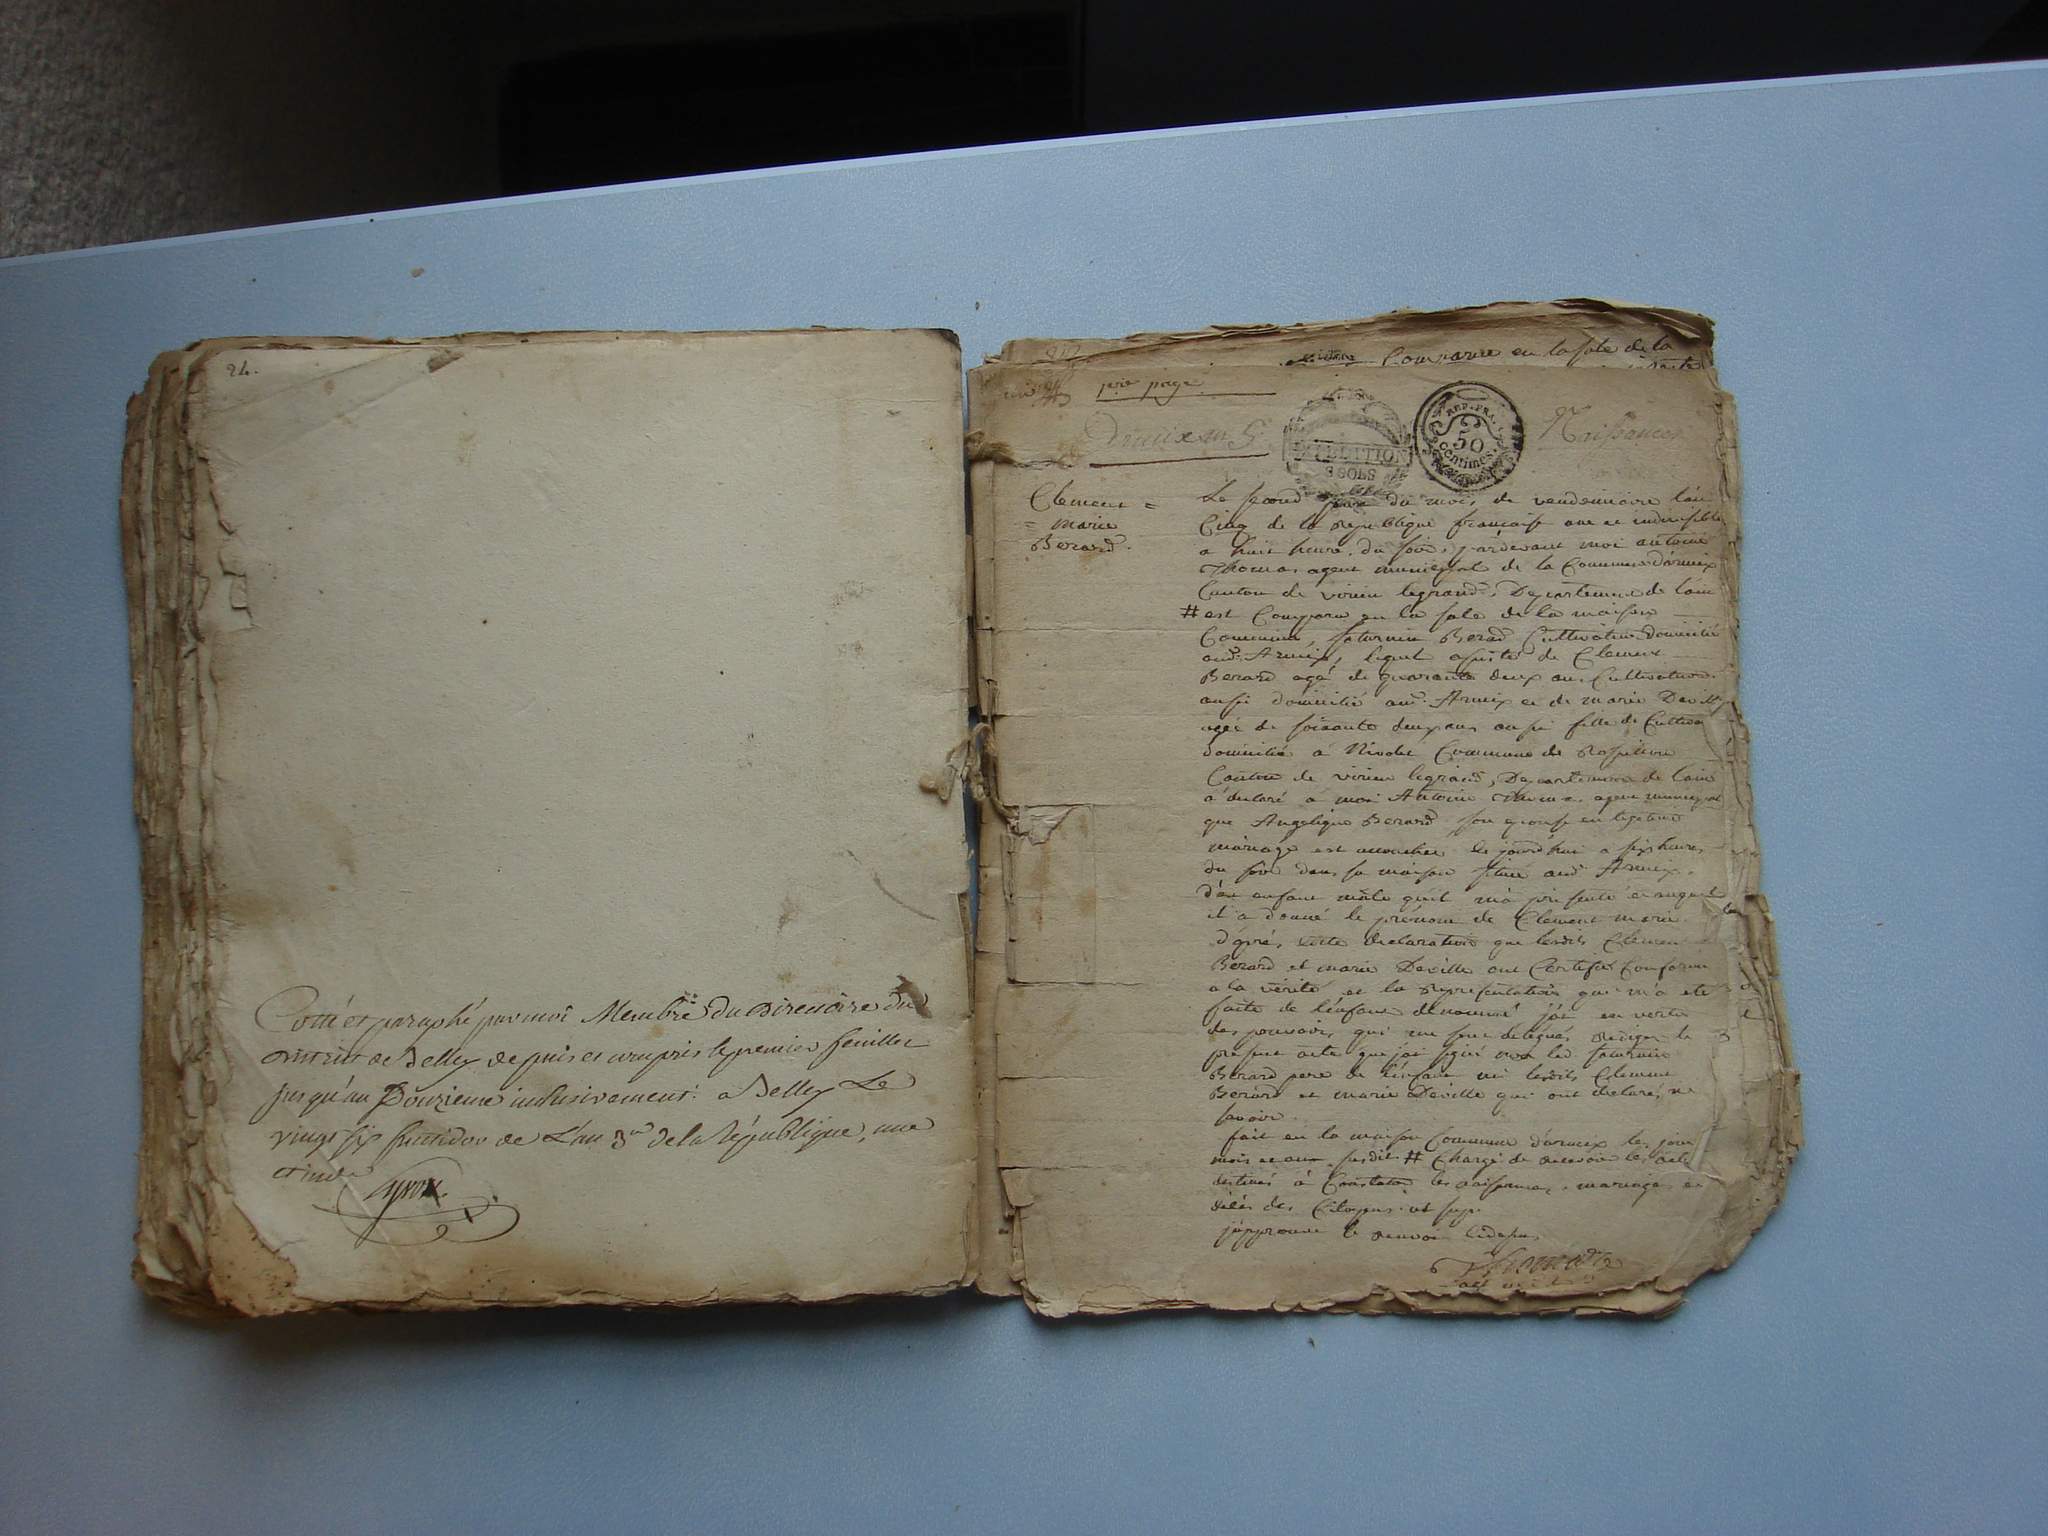 24.
Cotté et paraphé par moi Membre du Directoire du
District de Belley depuis et compris le premier feuillet
jusqu'au Douzieme inclusivement. a Belley Le
vingt six fructidor de L'an 3me de la République, une
et ind
Comparu en la sale de la
1ere page
Armix an 5
EXPEDITION
8 SOLS
REP. FRA.
50
centimes
Naissances
Clement =
= marie
Berard.
Le second jour du mois de vendemiaire l'an
Cinq de la republique française une et indivisible
a huit heure du soir, pardevant moi antoine
Thomas agent municipal de la Commune d'armix
Canton de virieu legrand, Departement de l'ain
# est Comparu en la sale de la maison
Commune, saturnin Berard Cultivateur domicilié
aud. Armix, lequel assisté de Clement
Berard agé de quarante deux ans Cultivateur
aussi domicilié aud. Armix et de marie Deville
agée de soixante deux ans aussi fille de Cultiva
domicilié à Nivolet Commune de Rossillion
Canton de virieu legrand, Departement de l'ain
a declaré à moi Antoine Thomas agent municipal
que Angelique Berard son epouse en legitime
mariage est accouchée le jourd'hui a six heures
du soir dans sa maison située aud. Armix
d'un enfant mâle qu'il m'a presenté et auquel
il a donné le prénom de Clement marie
d'après cette declaration que lesdits Clement
Berard et marie Deville ont Certifié Conforme
a la vérité et la representation qui m'a eté
faite de l'enfant denommé j'ai en vertu
des pouvoirs qui me sont delegués rediger le
present acte que j'ai signé led. saturnin
Berard pere de l'enfant ni lesdits Clement
Berard et marie Deville qui ont declaré ne
savoir.
fait en la maison Commune d'armix les jour
mois et an susdit # Chargé de recevoir les actes
destinés à Constater les naissances, mariages et
décés des Citoyens
j'approuve le renvoi cidessus
Thomas